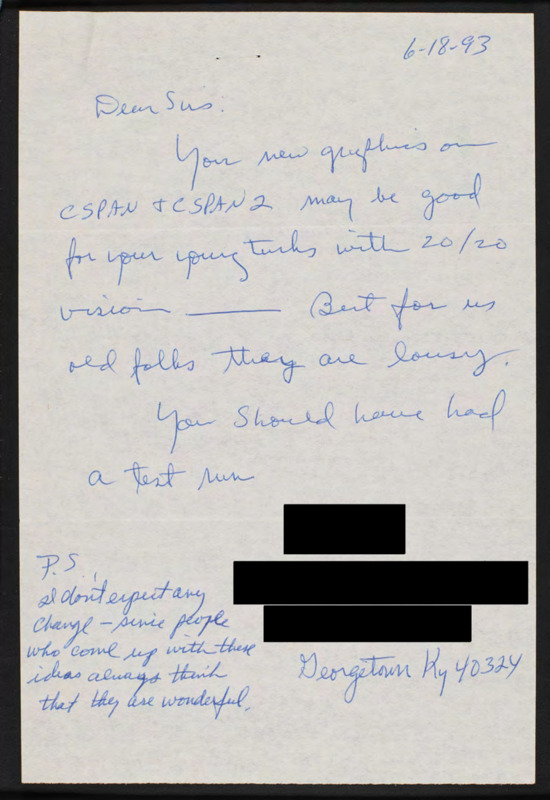 6-18-93
Dear Sirs.
Your new graphics on
CSPAN + CSPAN 2 may be good
for your young turks with 20/20
vision —— But for us
old folks they are lousy.
You should have had
a test run
P.S.
I don't expect any
change - since people
who come up with these
ideas always think
that they are wonderful.
Georgetown Ky 40324